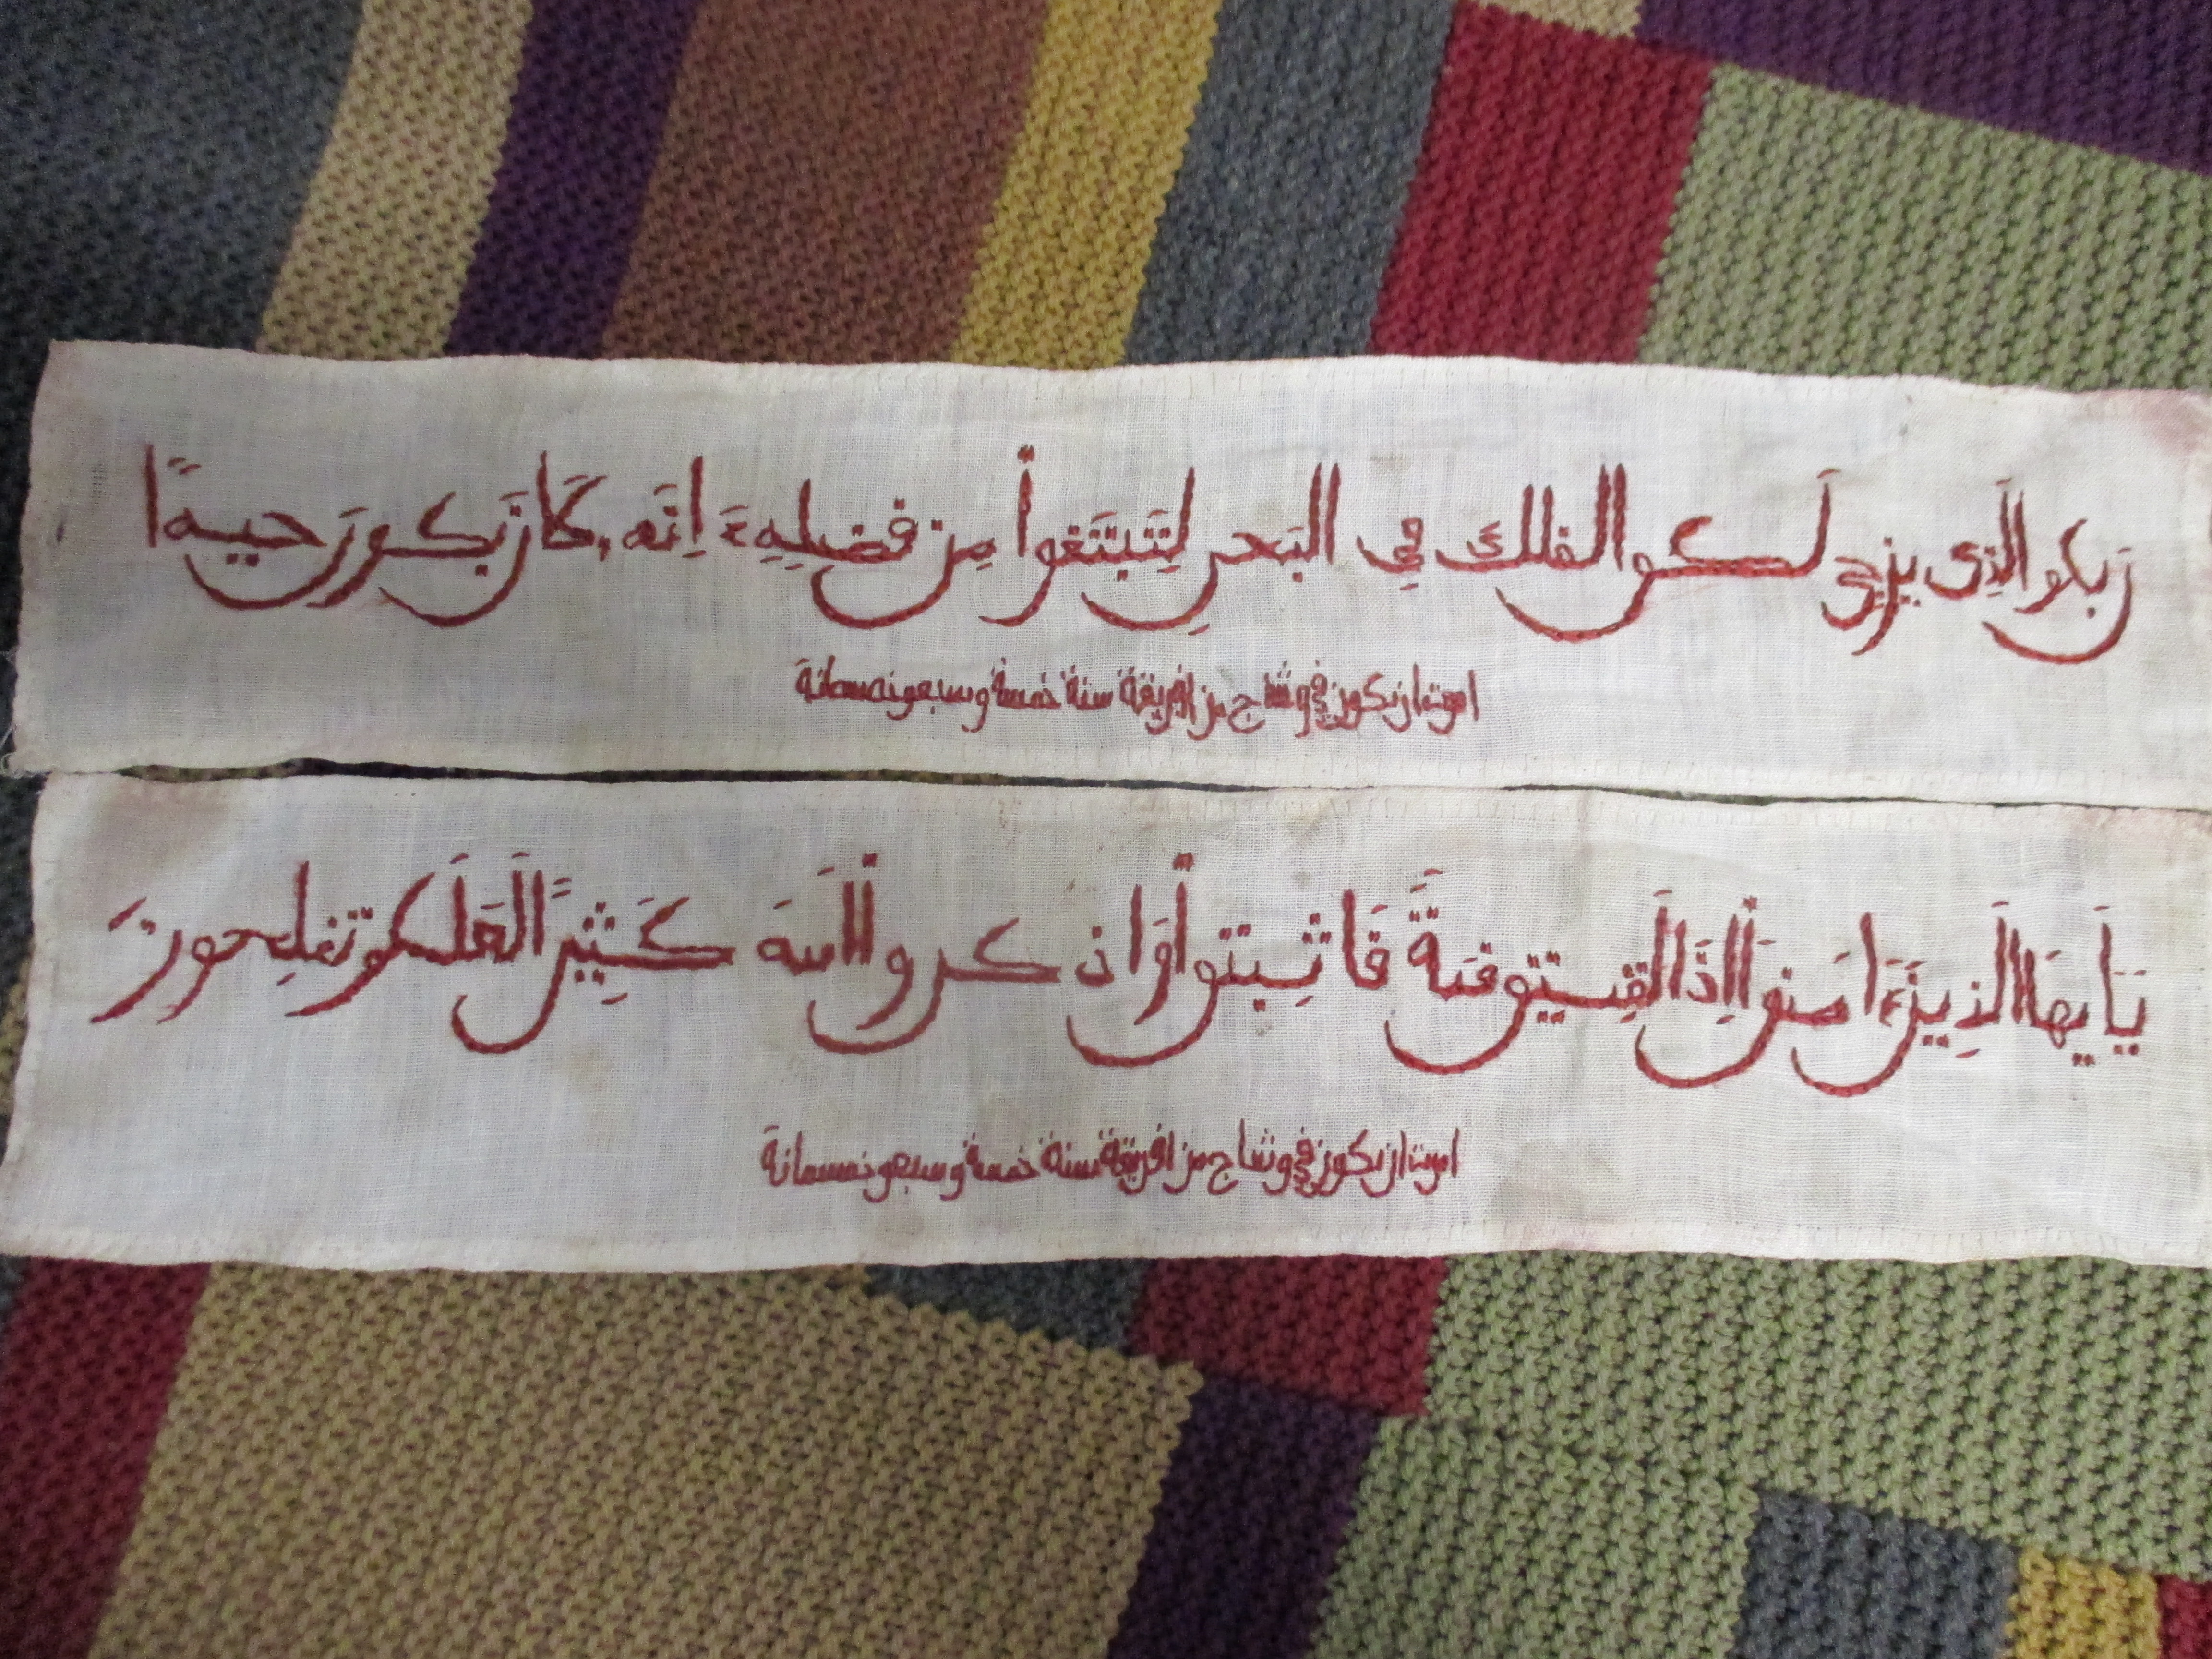 رَبكم الَذِى يزجِي لَكم الفلك فِي البَحرِ لِتَبتَغواْ مِن فضلِهِءَ اِنَه، كَان رَبكم رَحيمًا
امرت ان تكون في وشاج من افريقة سنة خمسة وسبعو نسمائة
يَاَيهَا الَذِينَءَامَنوَاْ اِذَا لَقِيتم فئةً فَاثبِتواْ وَاذكرواْ اللهَ كَثِيرًا لَعَلَكم تفلِحونَ
امرت ان تكون في وشاج من افريقة سنة خمسة وسبعو نسمائة